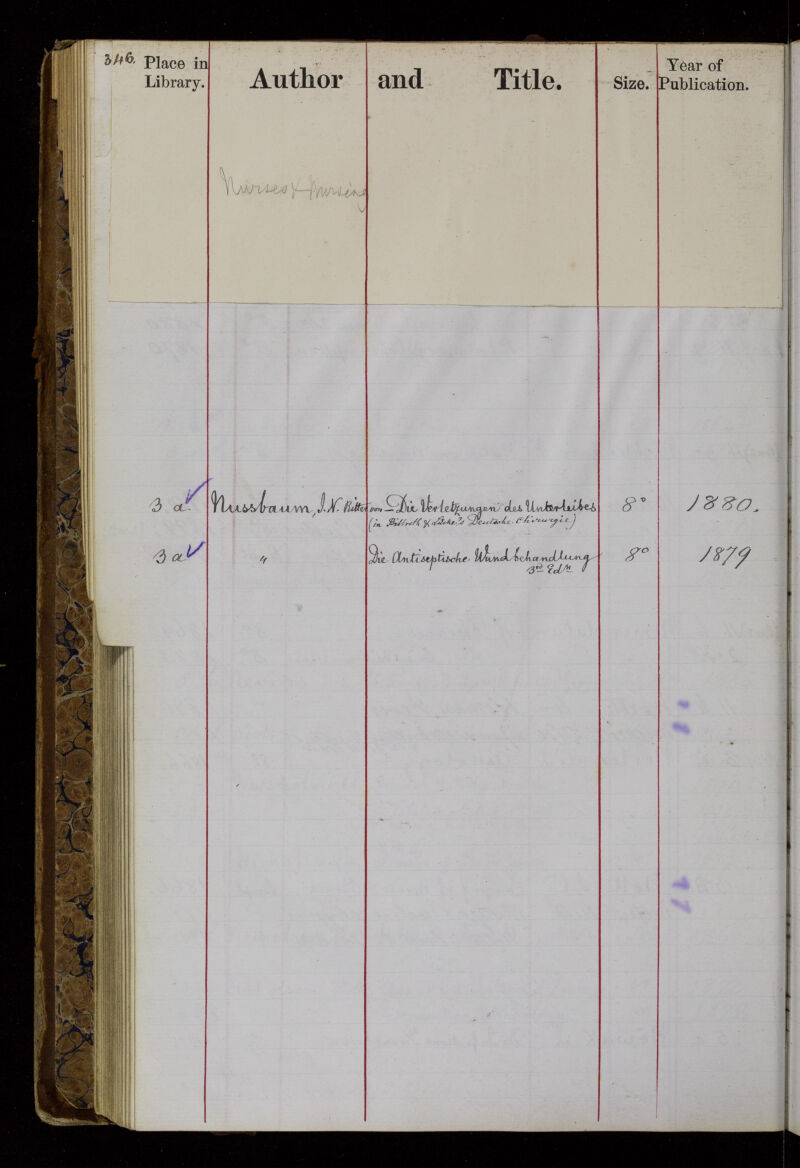 346. Place in Library. Author and Title. Size. Year of Publication.
Nurses & Nursing
3 a. Nussbaum, J. N. Ritter von — Die Verletzungen des Unterleibes 8° 1880.
(in Billroth & Lücke's Deutsche Chirurgie)
3 a " Die Antiseptische Wundbehandlung 8° 1879
3rd Edn.